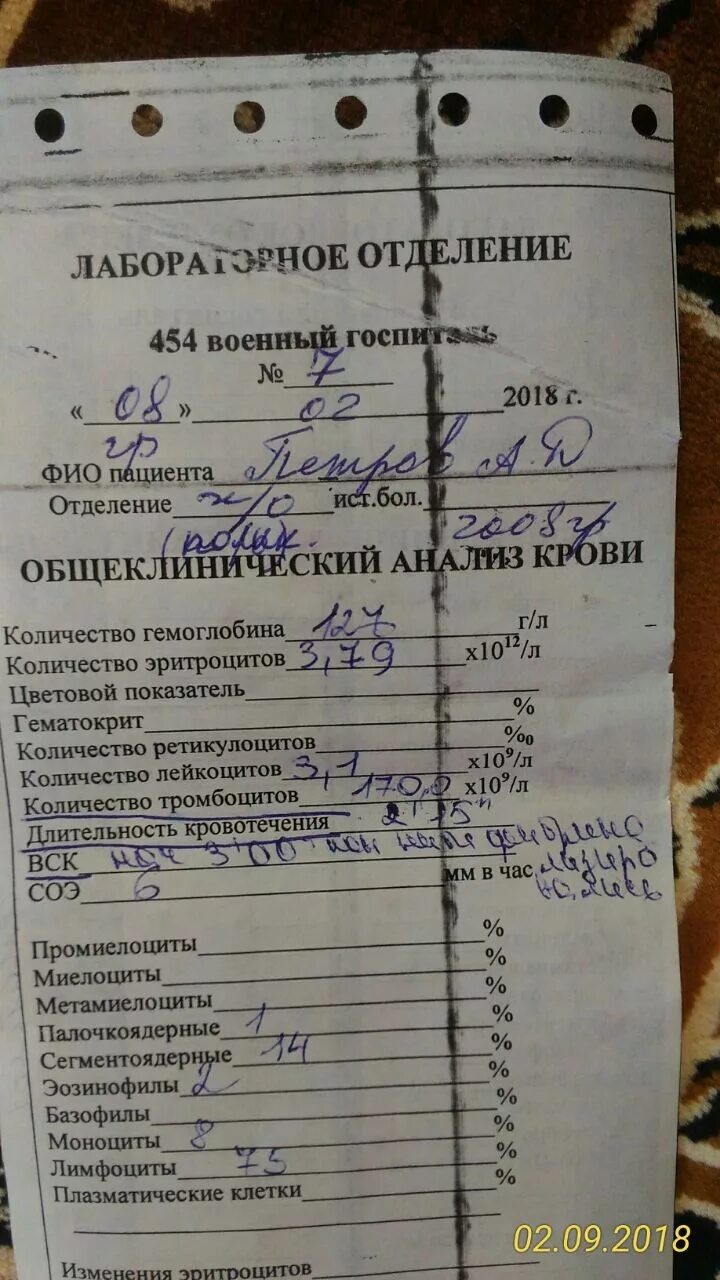 ЛАБОРАТОРНОЕ ОТДЕЛЕНИЕ
454 военный госпиталь
№ 7
« 08 » 02 2018 г.
гр
ФИО пациента Петров А.Д
Отделение х/о ист.бол.
(полик. 2008 гр
ОБЩЕКЛИНИЧЕСКИЙ АНАЛИЗ КРОВИ
Количество гемоглобина 127 г/л
Количество эритроцитов 3,79 х10¹²/л
Цветовой показатель
Гематокрит %
Количество ретикулоцитов ‰
Количество лейкоцитов 3,1 х10⁹/л
Количество тромбоцитов 170,0 х10⁹/л
Длительность кровотечения 2' 15"
ВСК нач 3'00" кон
СОЭ 6 мм в час
Промиелоциты %
Миелоциты %
Метамиелоциты %
Палочкоядерные 1 %
Сегментоядерные 14 %
Эозинофилы 2 %
Базофилы %
Моноциты 8 %
Лимфоциты 75 %
Плазматические клетки %
Изменения эритроцитов
02.09.2018